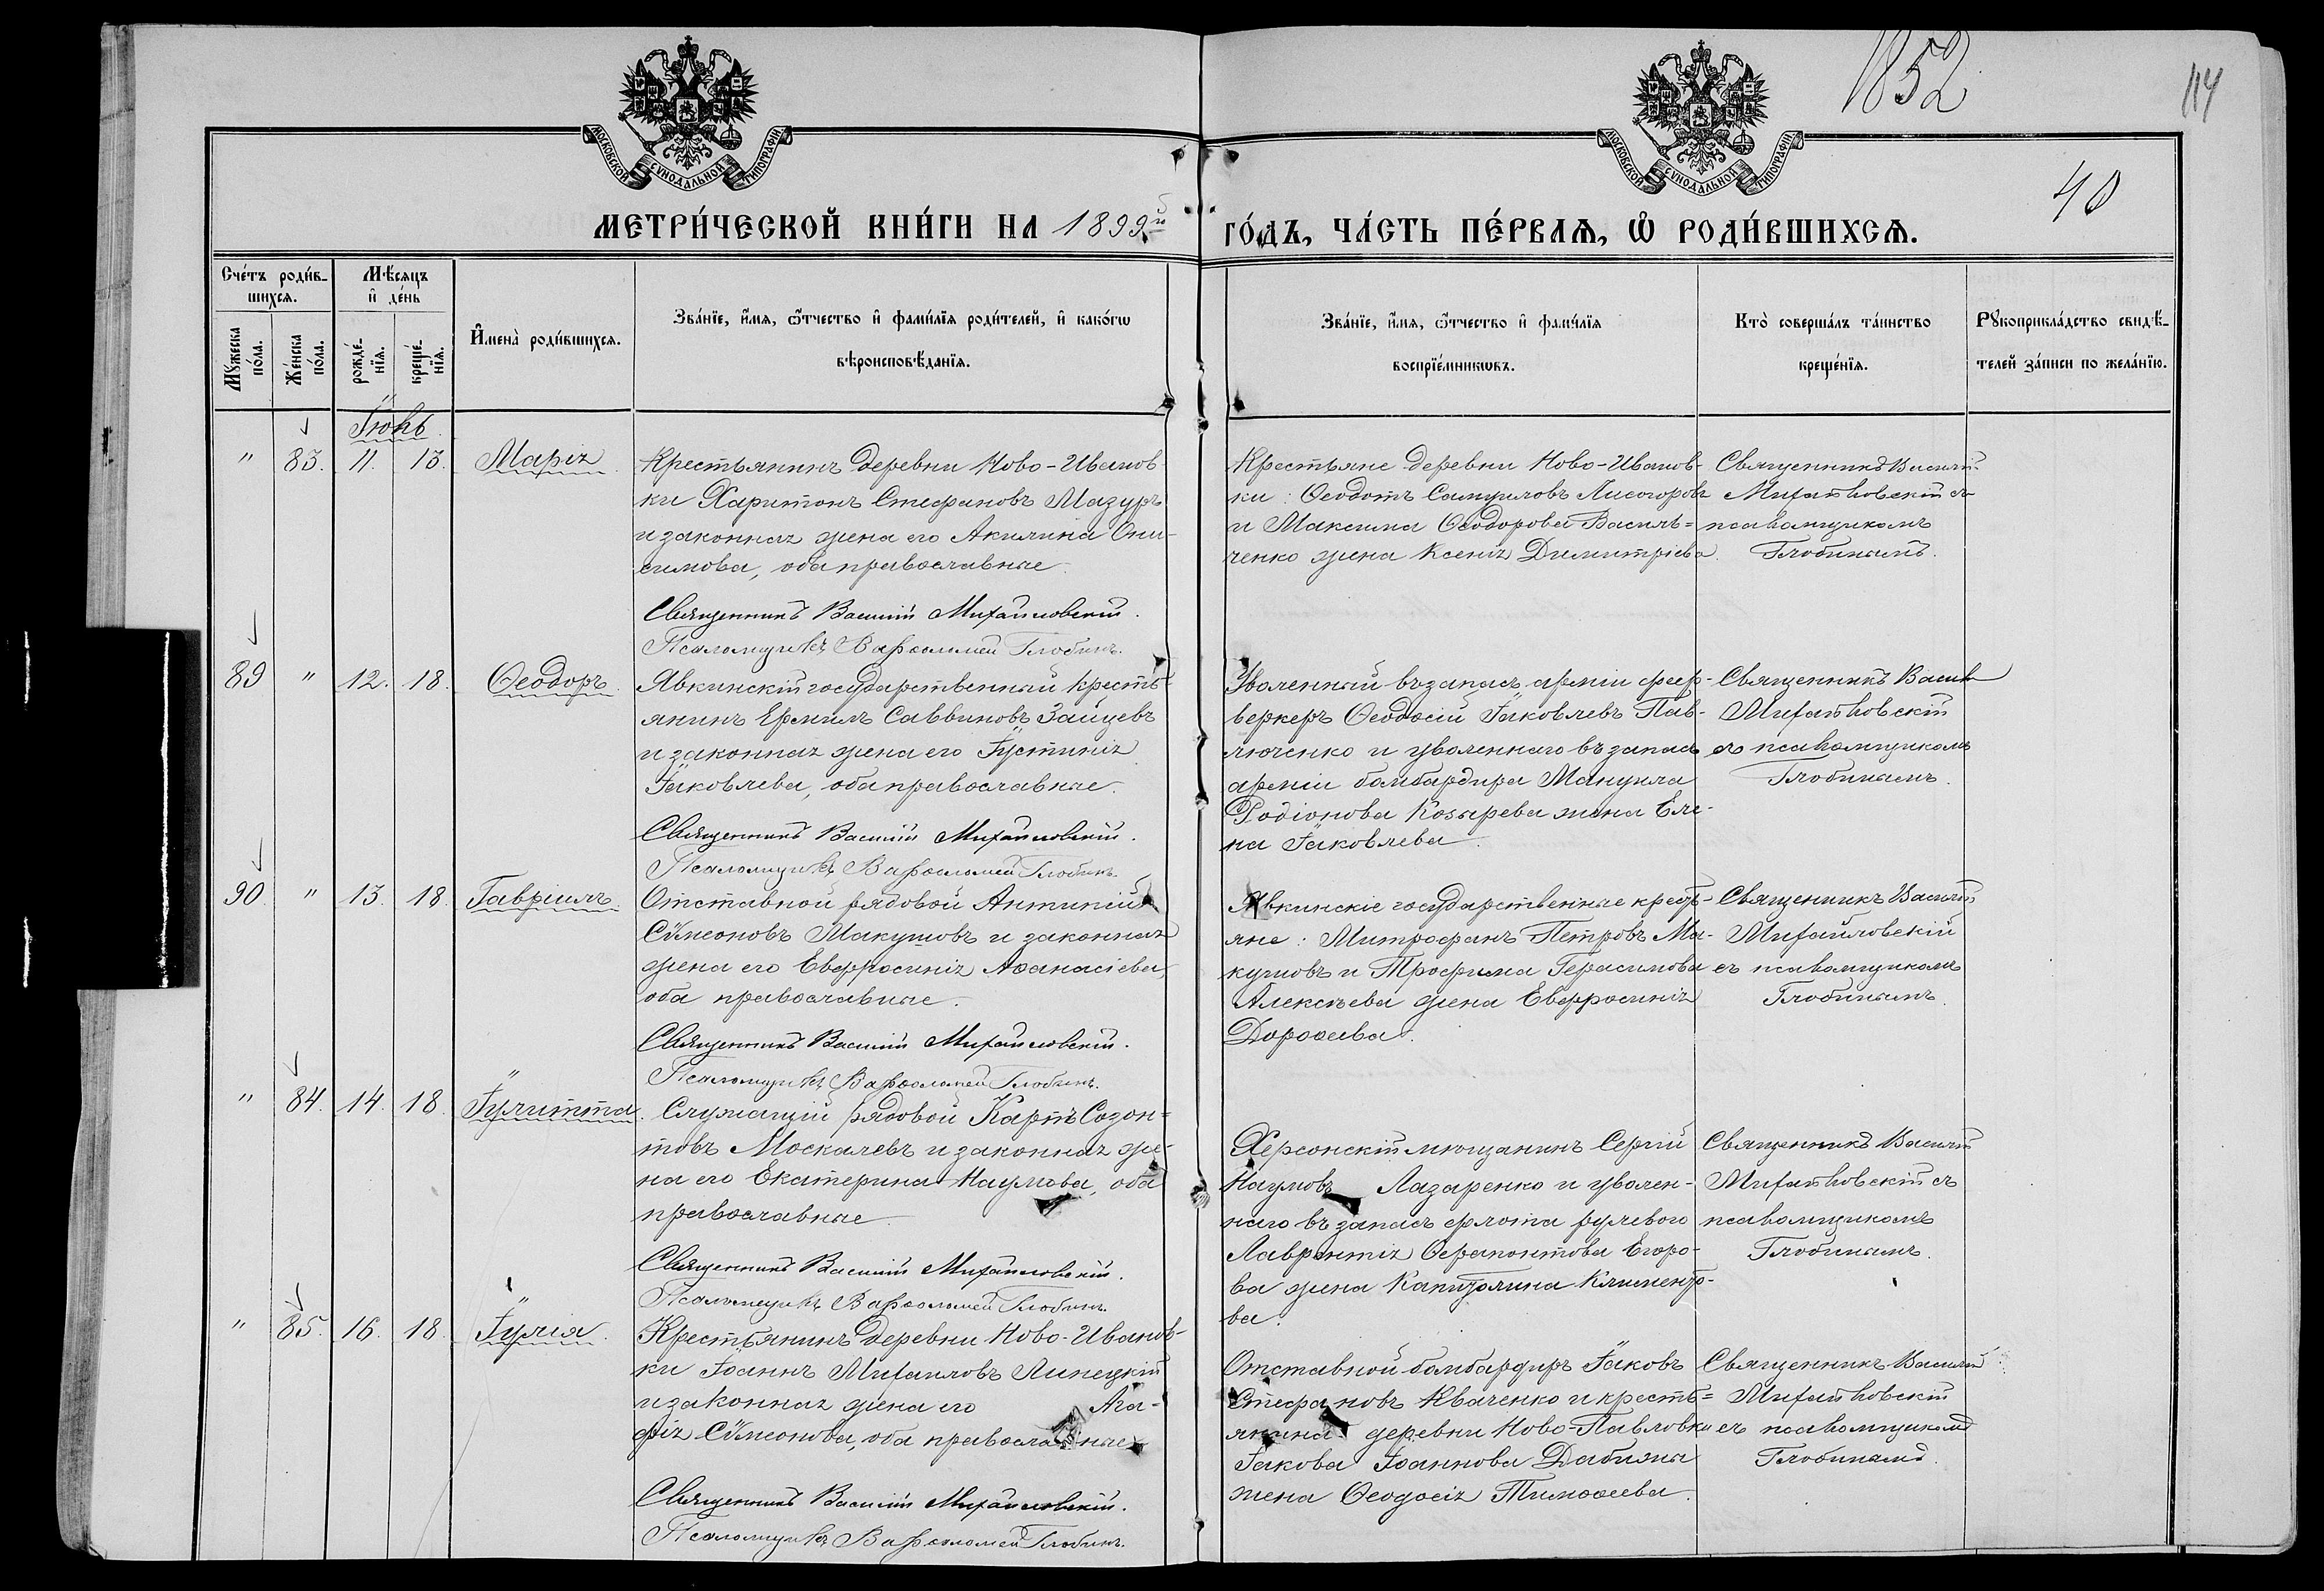 1852
114
40
МОСКОВСКОЙ СѴНОДАЛЬНОЙ ТИПОГРАФІИ
МОСКОВСКОЙ СѴНОДАЛЬНОЙ ТИПОГРАФІИ
МЕТРИ́ЧЕСКОЙ КНИ́ГИ НА 1899й ГО́ДЪ, ЧА́СТЬ ПЕ́РВАѦ, Ѡ҆ РОДИ́ВШИХСѦ.
Сче́тъ роди́в-
шихсѧ.
Мꙋ́жеска по́ла.
Же́нска по́ла.
Мѣ́сѧцъ
и҆ де́нь
рожде́-
нїѧ.
креще́-
нїѧ.
И҆мена̀ роди́вшихсѧ.
Зва́нїе, и҆́мѧ, ѻ҆́тчество и҆ фами́лїѧ роди́телей, и҆ како́гѡ
вѣроисповѣ́данїѧ.
Зва́нїе, и҆́мѧ, ѻ҆́тчество и҆ фами́лїѧ
воспрїе́мникѡвъ.
Кто̀ соверша́лъ та́инство
креще́нїѧ.
Рꙋкоприкла́дство свидѣ́-
телей за́писи по жела́нїю.
Іюнь
" 83. 11. 13. Марія
Крестьянинъ деревни Ново-Иванов-
ки Харитонъ Стефановъ Мазуръ
и законная жена его Акилина Они-
симова, оба православные.
Священникъ Василій Михайловскій.
Псаломщикъ Варѳоломей Глобинъ.
Крестьяне деревни Ново-Иванов-
ки: Ѳеодотъ Самуиловъ Лисогоровъ
и Максима Ѳеодорова Василь=
ченко жена Ксенія Димитріева.
Священникъ Василій
Михайловскій съ
псаломщикомъ
Глобинымъ.
89 " 12. 18. Ѳеодоръ.
Явкинскій государственный кресть-
янинъ Ермилъ Саввиновъ Зайцевъ
и законная жена его Іустинія
Іаковлева, оба православные.
Священникъ Василій Михайловскій.
Псаломщикъ Варѳоломей Глобинъ.
Уволенный въ запасъ арміи фейер-
веркеръ Ѳеодосій Іаковлевъ Пав-
люченко и уволеннаго въ запасъ
арміи бомбардира Мануила
Родіонова Козырева жена Еле-
на Іаковлева.
Священникъ Василій
Михайловскій
съ псаломщикомъ
Глобинымъ.
90 " 13. 18. Гавріилъ.
Отставной рядовой Антипій
Сѵмеоновъ Макушовъ и законная
жена его Евфросинія Аѳанасіева,
оба православные.
Священникъ Василій Михайловскій.
Псаломщикъ Варѳоломей Глобинъ.
Явкинскіе государственные кресть-
яне: Митрофанъ Петровъ Ма-
кушовъ и Трофима Герасимова
Алексѣева жена Евфросинія
Дороѳеева.
Священникъ Василій
Михайловскій
съ псаломщикомъ
Глобинымъ.
" 84. 14. 18. Іулитта.
Служащій рядовой Карпъ Созон=
товъ Москалевъ и законная же-
на его Екатерина Наумова, оба
православные.
Священникъ Василій Михайловскій.
Псаломщикъ Варѳоломей Глобинъ.
Херсонскій мѣщанинъ Сергій
Наумовъ Лазаренко и уволен-
наго въ запасъ флота рулевого
Лаврентія Ѳерапонтова Егоро-
ва жена Капитолина Клименто-
ва.
Священникъ Василій
Михайловскій съ
псаломщикомъ
Глобинымъ.
" 85. 16. 18. Іулія.
Крестьянинъ деревни Ново-Иванов-
ки Іоаннъ Михаиловъ Липецкій
и законная жена его Ага-
фія Сѵмеонова, оба православные.
Священникъ Василій Михайловскій.
Псаломщикъ Варѳоломей Глобинъ.
Отставной бомбардиръ Іаковъ
Стефановъ Иваченко и кресть=
янина деревни Ново-Павловки
Іакова Іоаннова Дабижи
жена Ѳеодосія Тимоѳеева.
Священникъ Василій
Михайловскій
съ псаломщикомъ
Глобинымъ.